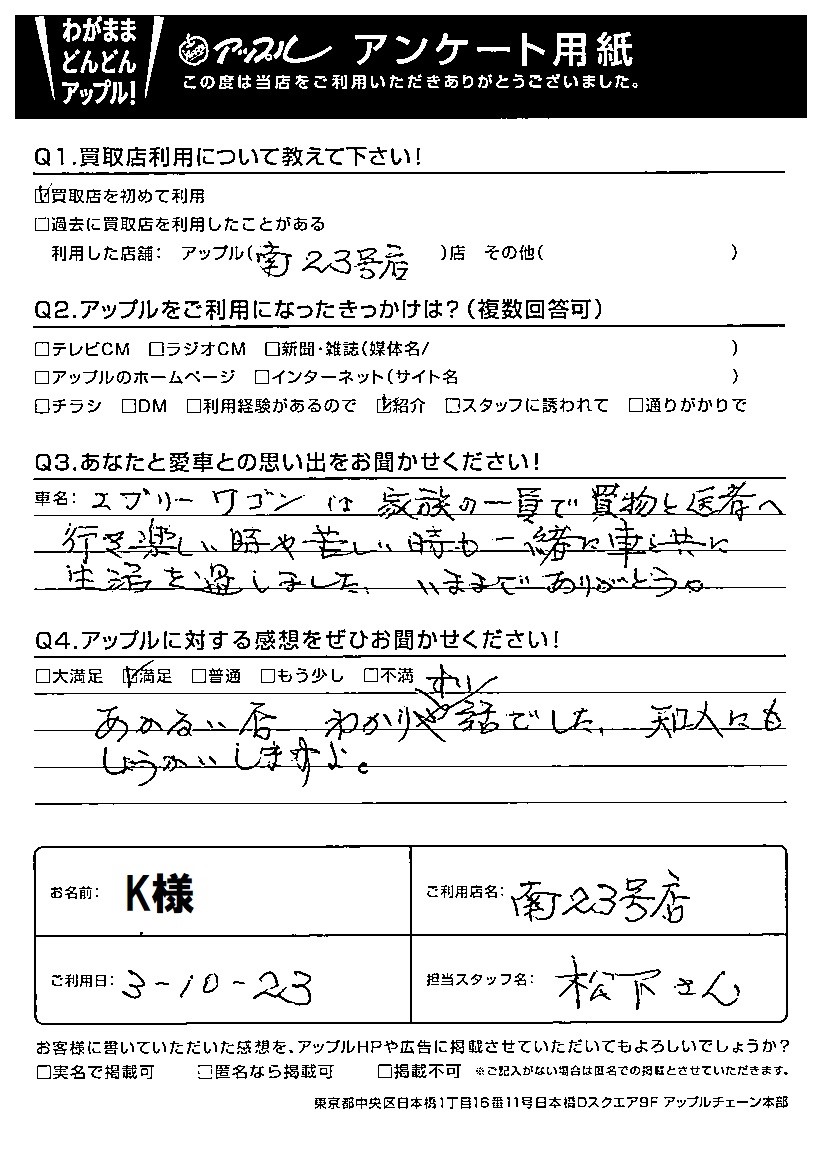 わがまま
どんどん
アップル!
アップル アンケート用紙
この度は当店をご利用いただきありがとうございました。
Q1.買取店利用について教えて下さい!
☑買取店を初めて利用
□過去に買取店を利用したことがある
利用した店舗: アップル(南23号店 )店 その他( )
Q2.アップルをご利用になったきっかけは?(複数回答可)
□テレビCM □ラジオCM □新聞・雑誌(媒体名/ )
□アップルのホームページ □インターネット(サイト名 )
□チラシ □DM □利用経験があるので ☑紹介 □スタッフに誘われて □通りがかりで
Q3.あなたと愛車との思い出をお聞かせください!
車名: エブリーワゴンは家族の一員で買物と医者へ
行き楽しい時や苦しい時も一緒に車と共に
生活を過しました、いままでありがとう。
Q4.アップルに対する感想をぜひお聞かせください!
□大満足 ☑満足 □普通 □もう少し □不満
すい
あかるい店 わかりや話でした、知人にも
しょうかいしますよ。
お名前: K様
ご利用店名: 南23号店
ご利用日: 3-10-23
担当スタッフ名: 松下さん
お客様に書いていただいた感想を、アップルHPや広告に掲載させていただいてもよろしいでしょうか?
□実名で掲載可 □匿名なら掲載可 □掲載不可 ※ご記入がない場合は匿名での掲載とさせていただきます。
東京都中央区日本橋1丁目16番11号日本橋Dスクエア9F アップルチェーン本部